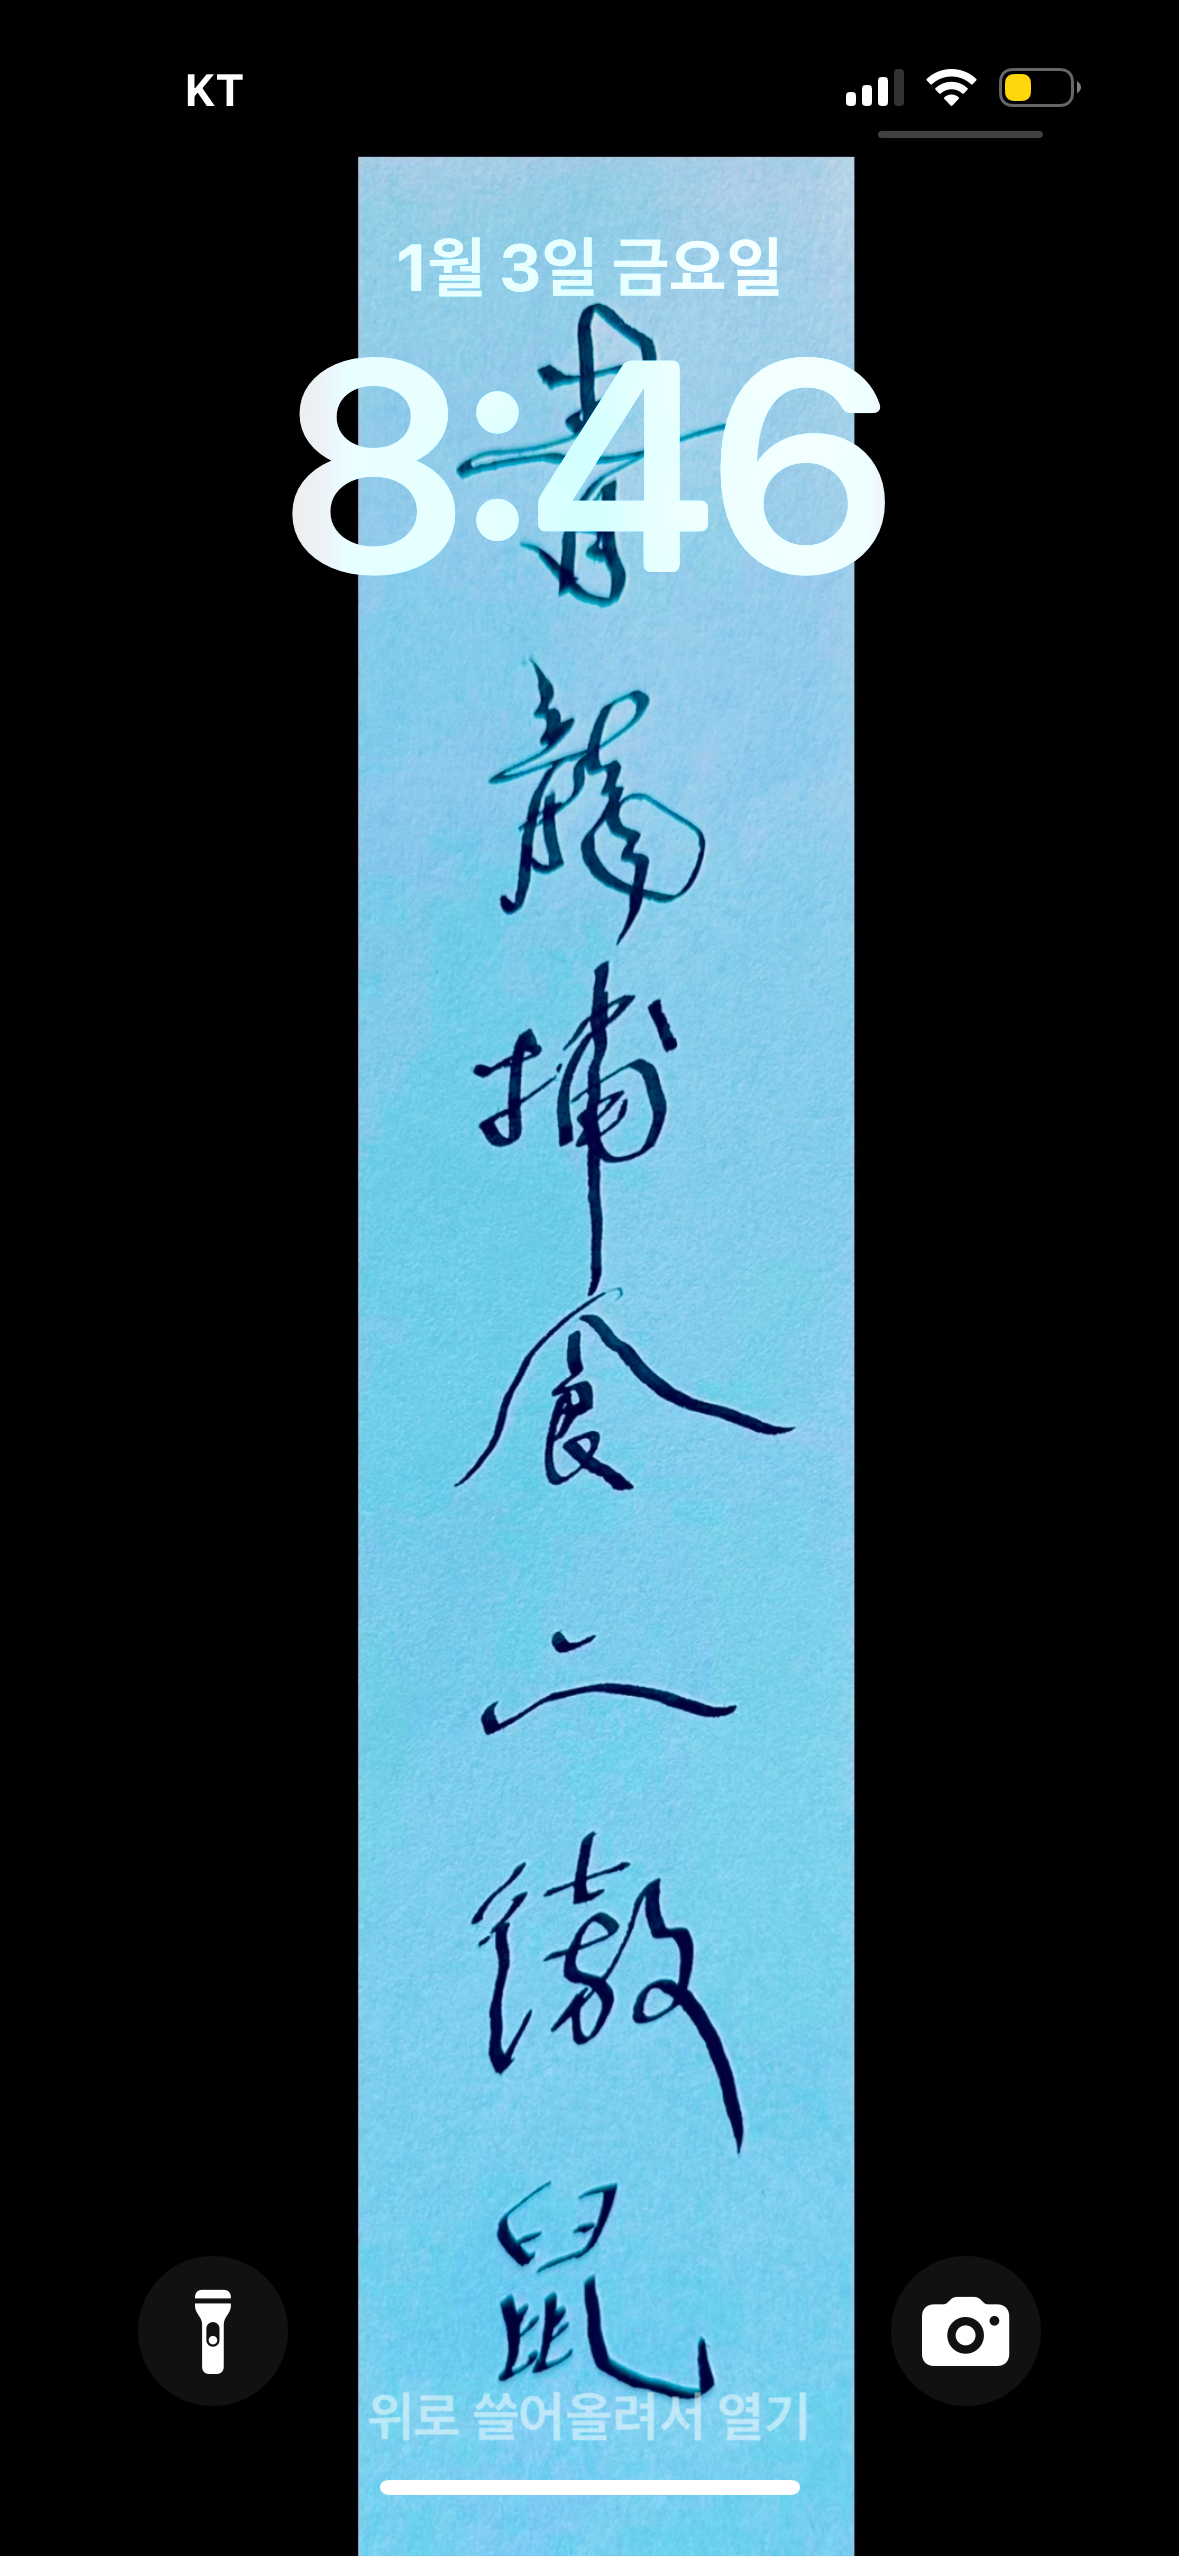 KT
1월 3일 금요일
8:46
青龍捕食二徼鼠
위로 쓸어올려서 열기